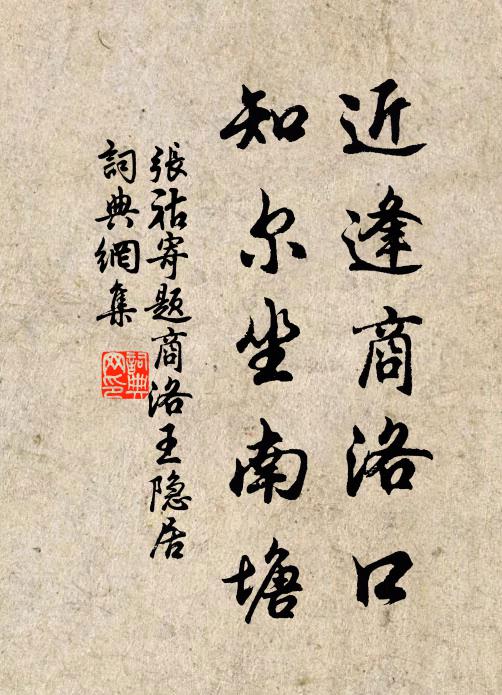 近逢商洛口
知尔坐南塘
張祜寄题商洛王隐居
詞典網集
詞典网印